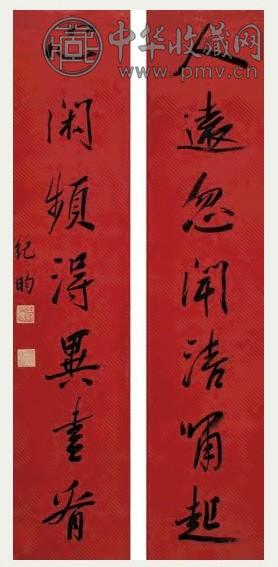 中华收藏网
www.pmv.cn
人遠忽聞清嘯起
心閑頻得異書看
紀昀